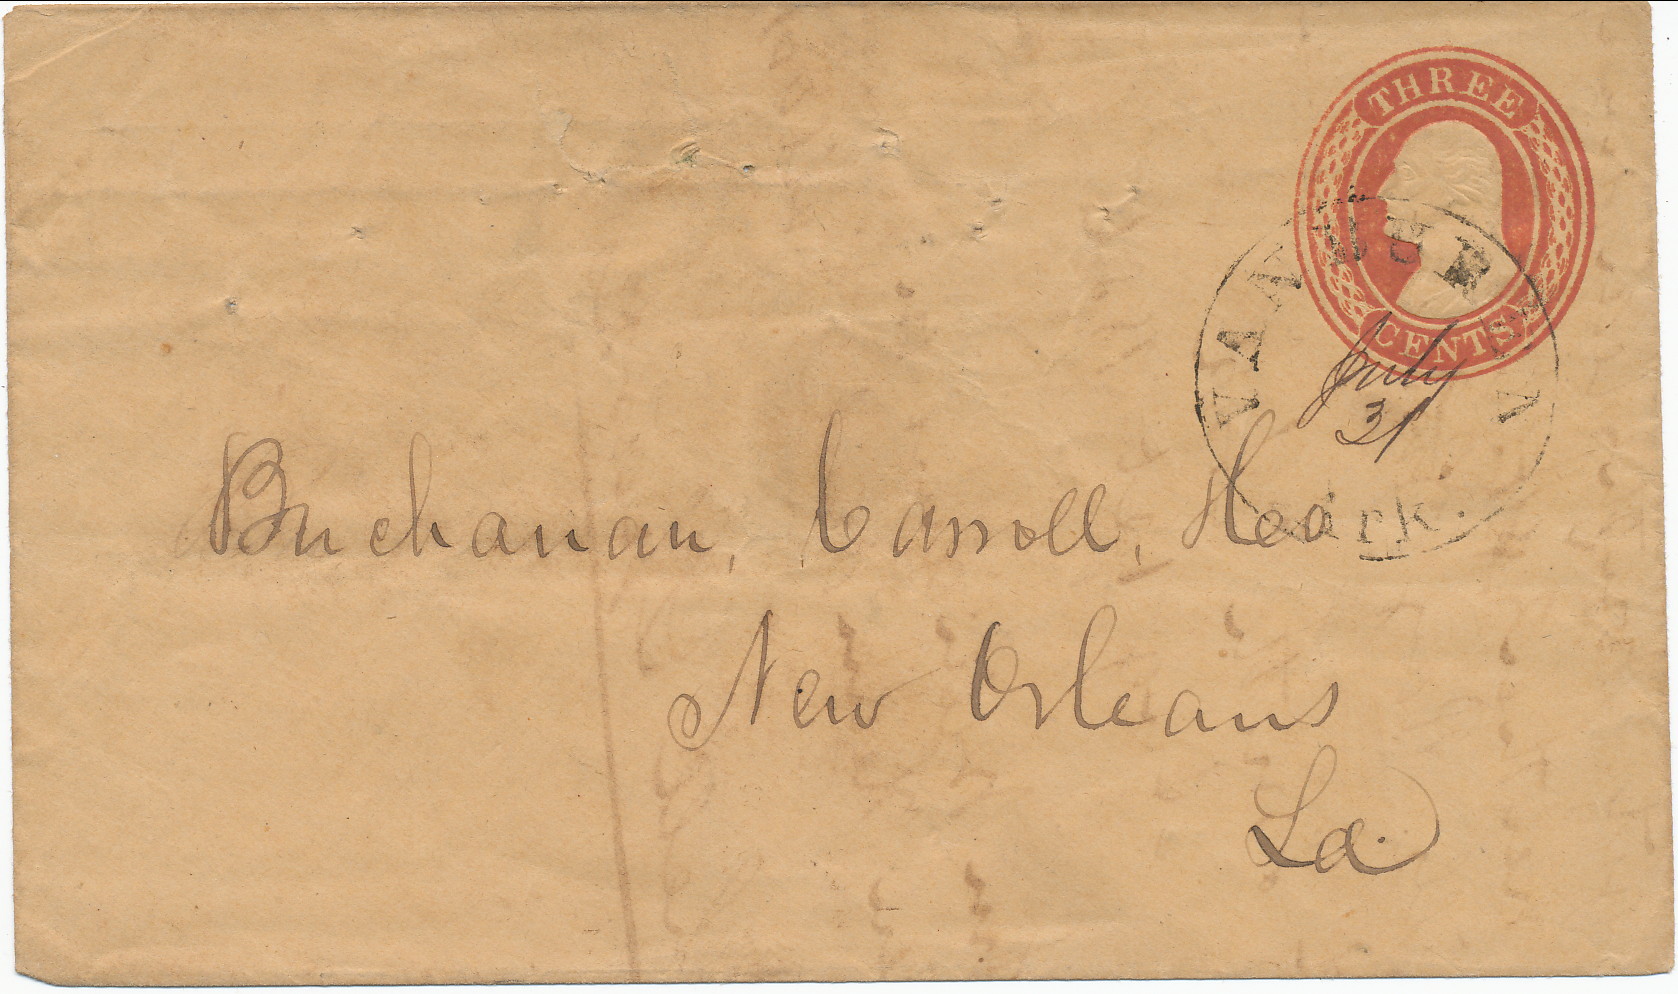 THREE
CENTS
VAN BUREN
Ark.
July
31
Buchanan, Carroll,
New Orleans
La.